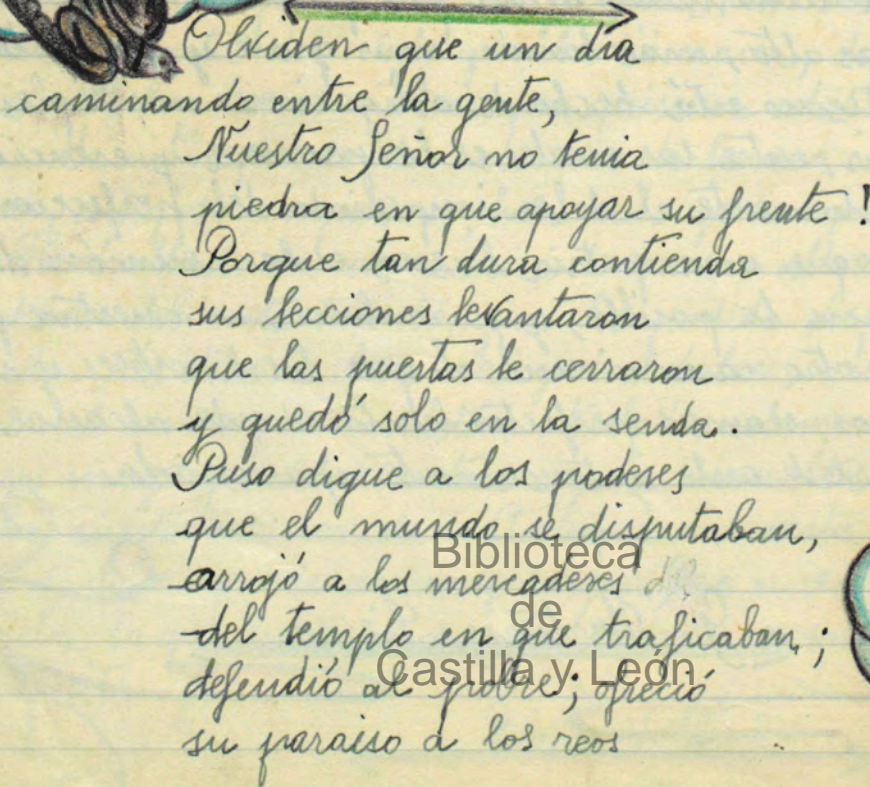 Olviden que un día
caminando entre la gente,
Nuestro Señor no tenia
piedra en que apoyar su frente!
Porque tan dura contienda
sus lecciones levantaron
que las puertas le cerraron
y quedó solo en la senda.
Puso dique a los poderes
que el mundo se disputaban,
arrojó a los mercaderes
del templo en que traficaban;
defendió al pobre; ofreció
su paraiso a los reos
Biblioteca
de
Castilla y León